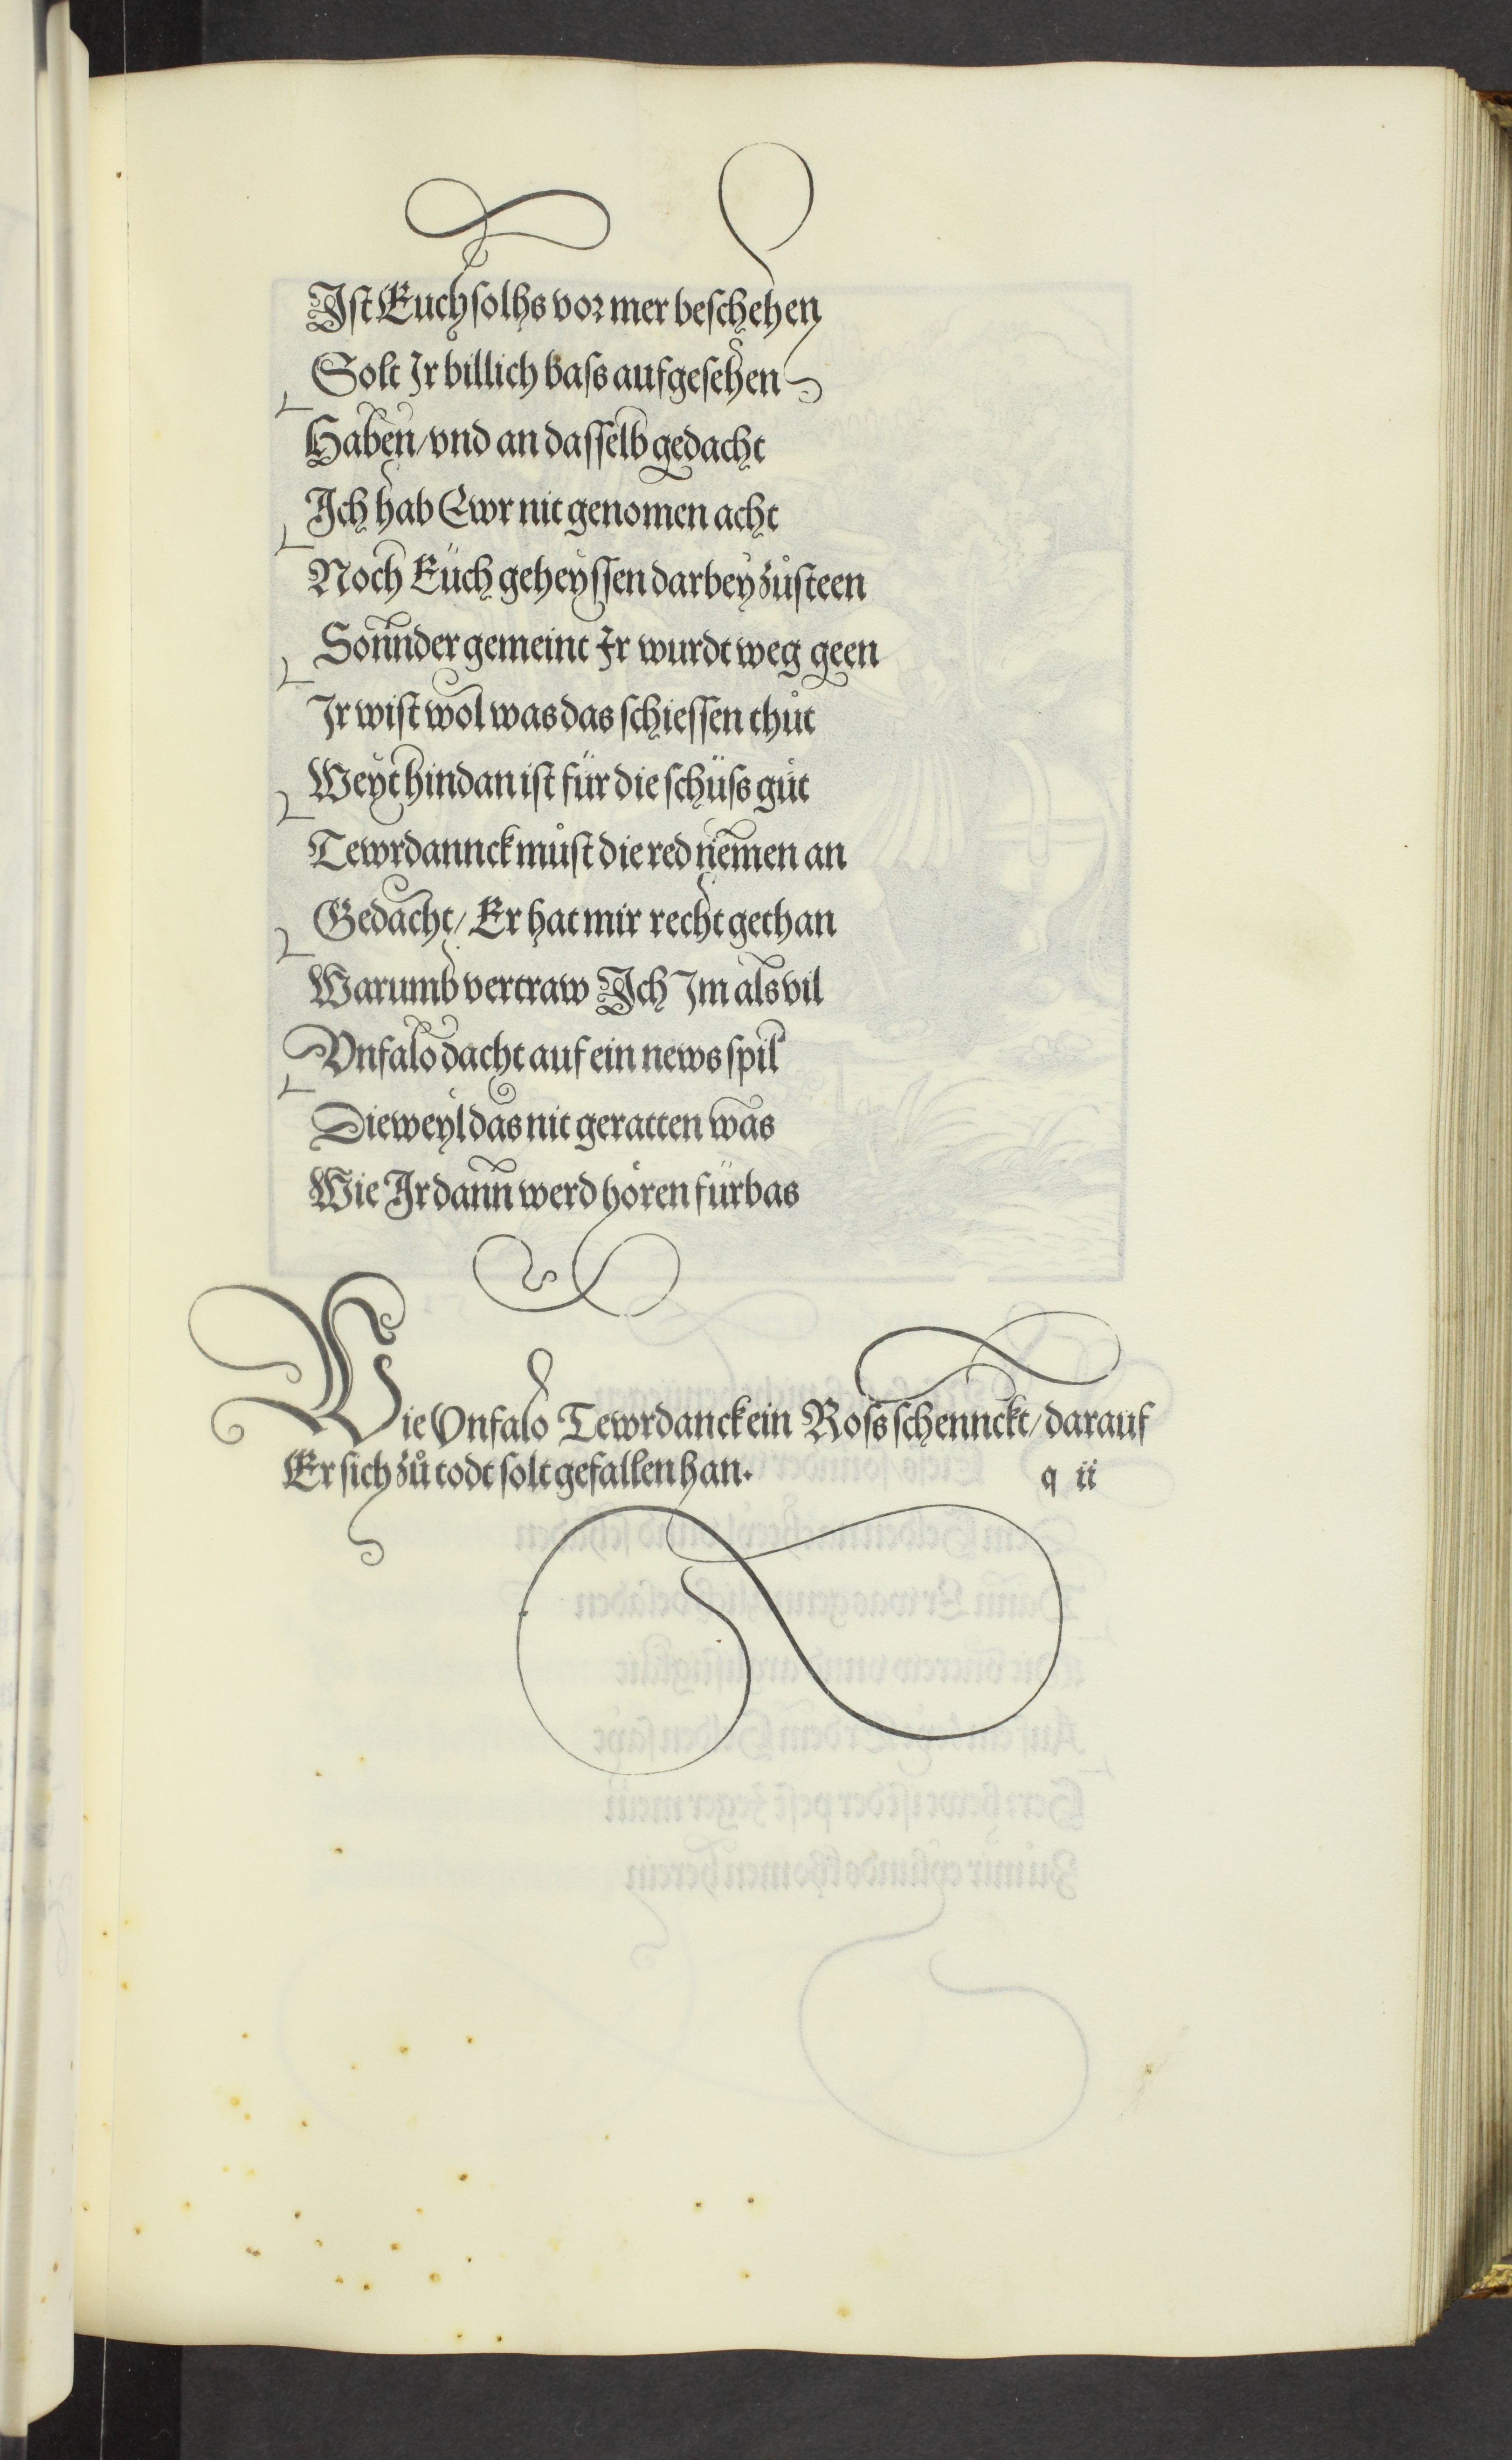 Ist Euch solhs vor mer beschehen
Solt Ir billich bass aufgesehen
Haben/ vnd an dasselb gedacht
Ich hab Ewr nit genomen acht
Noch Eüch geheyssen darbey zůsteen
Sonnder gemeint Ir wurdt weg geen
Ir wist wol was das schiessen thůt
Weyt hindan ist für die schüss gůt
Tewrdannck můst die red nemen an
Gedacht/ Er hat mir recht gethan
Warumb vertraw Ich Im als vil
Vnfalo dacht auf ein news spil
Dieweyl das nit geratten was
Wie Ir dann werd hören fürbas
Wie Vnfalo Tewrdanck ein Ross schennckt/ darauf
Er sich zů todt solt gefallen han.
q ii